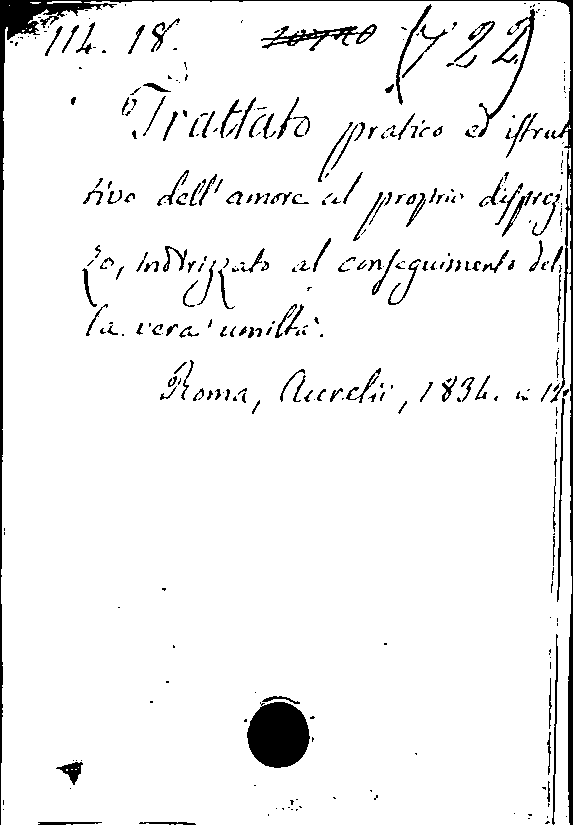 114. 18. (722)
Trattato pratico ed istrut
tivo dell' amore al proprio disprez
zo, indirizzato al conseguimento del
la vera umiltà.
Roma, Aurelii, 1834. in 12.